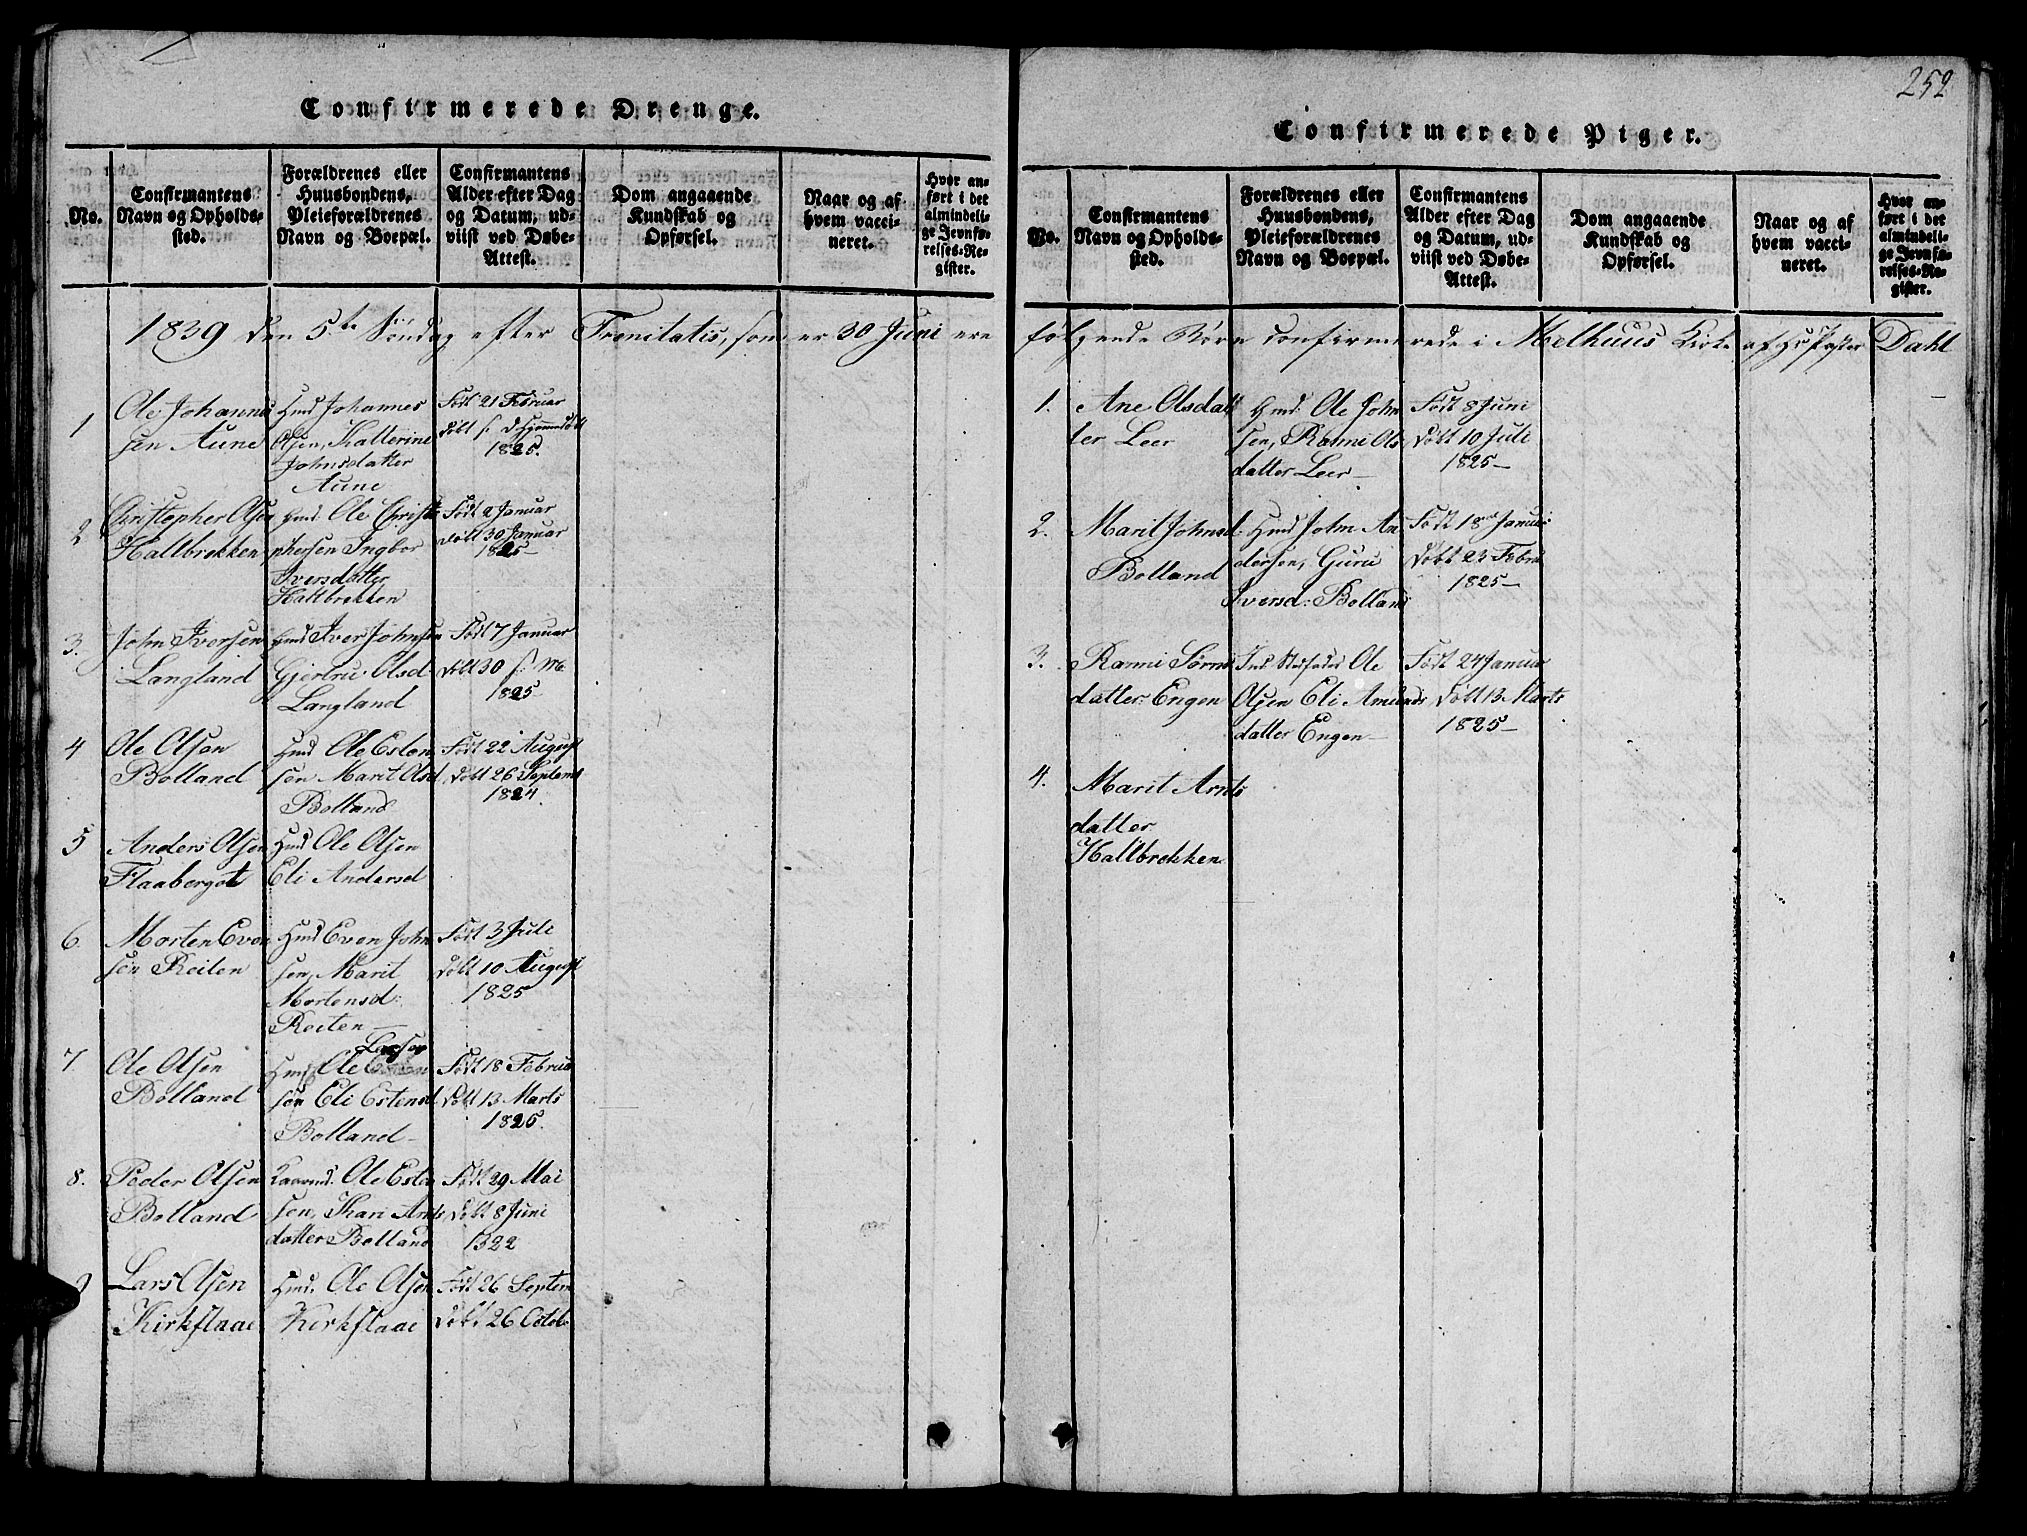 252
Confirmerede Drenge.
No.
Confirmantens
Navn og Opholds-
sted.
Forældrenes eller
Huusbondens,
Pleieforældrenes
Navn og Boepæl.
Confirmantens
Alder efter Dag
og Datum, ud-
viist ved Døbe-
Attest.
Dom angaaende
Kundskab og
Opførsel.
Naar og af
hvem vacci-
neret.
Hvor an-
ført i det
almindeli-
ge Jevnfø-
relses-Re-
gister.
1839 den 5te Søndag efter Trenitatis, som er 30 Juni ere
1
Ole Johannes
sen Aune
Hmd Johannes
Olsen, Katterine
Johnsdatter
Aune
Født 21 Februar
Døbt
1825.
2
Christopher Olsen
Hallbrekken
Hmd. Ole Christo
phersen Ingbor
Iversdatter
Hallbrekken
Født 2 Januar
Døbt 30 Januar
1825
3.
John Iversen
Langland
Hmd Iver Johnsen
Gjertru Olsd
Langland
Født 7 Januar
Døbt 30
1825
4
Ole Olsen
Bolland
Hmd Ole Esten
sen Marit Olsd
Bolland
Født 22 August
Døbt 26 Septem
1824.
5
Anders Olsen
Flaaberget
Hmd Ole Olsen
Eli Andersd
6.
Morten Even
sen Reiten
Hmd Even John
sen, Marit
Mortensd:
Reiten
Født 3 Juli
Døbt 10 August
1825
7.
Ole Olsen
Bolland
Larsen
Hmd Ole
sen Eli Estensd
Bolland
Født 18 Februa
Døbt 13 Marts
1825.
8.
Peder Olsen
Bolland
Ole Esten
sen, Kari Arnts
datter Bolland
Født 29 Mai
Døbt 8 Juni
1822
9
Lars Olsen
Kirkflaae
Hmd. Ole Olsen
Kirkflaae
Født 26 Septem
Døbt 26 Octob
Confirmerede Piger.
No.
Confirmantens
Navn og Opholds-
sted.
Forældrenes eller
Huusbondens,
Pleieforældrenes
Navn og Boepæl.
Confirmantens
Alder efter Dag
og Datum, ud-
viist ved Døbe-
Attest.
Dom angaaende
Kundskab og
Opførsel.
Naar og af
hvem vacci-
neret.
Hvor an-
ført i det
almindeli-
ge Jevnfø-
relses-Re-
gister.
følgende Børn confirmerede i Melhuus Kirke af Hr Pastor Dahl
1.
Ane Olsdat
ter Leer
Hmd: Ole John
sen, Ranni Ols
datter Leer
Født 8 Juni
Døbt 10 Juli
1825
2.
Marit Johnsd
Bolland
Hmd John An
dersen, Guru
Iversd: Bolland
Født 18 Januar
Døbt 23 Febru
1825
3.
Ranni Sørns
datter Engen
Ole
Olsen Eli Amunds
datter Engen
Født 24 Januar
Døbt 13 Marts
1825
4.
Marit Arnts
datter
Hallbrekken